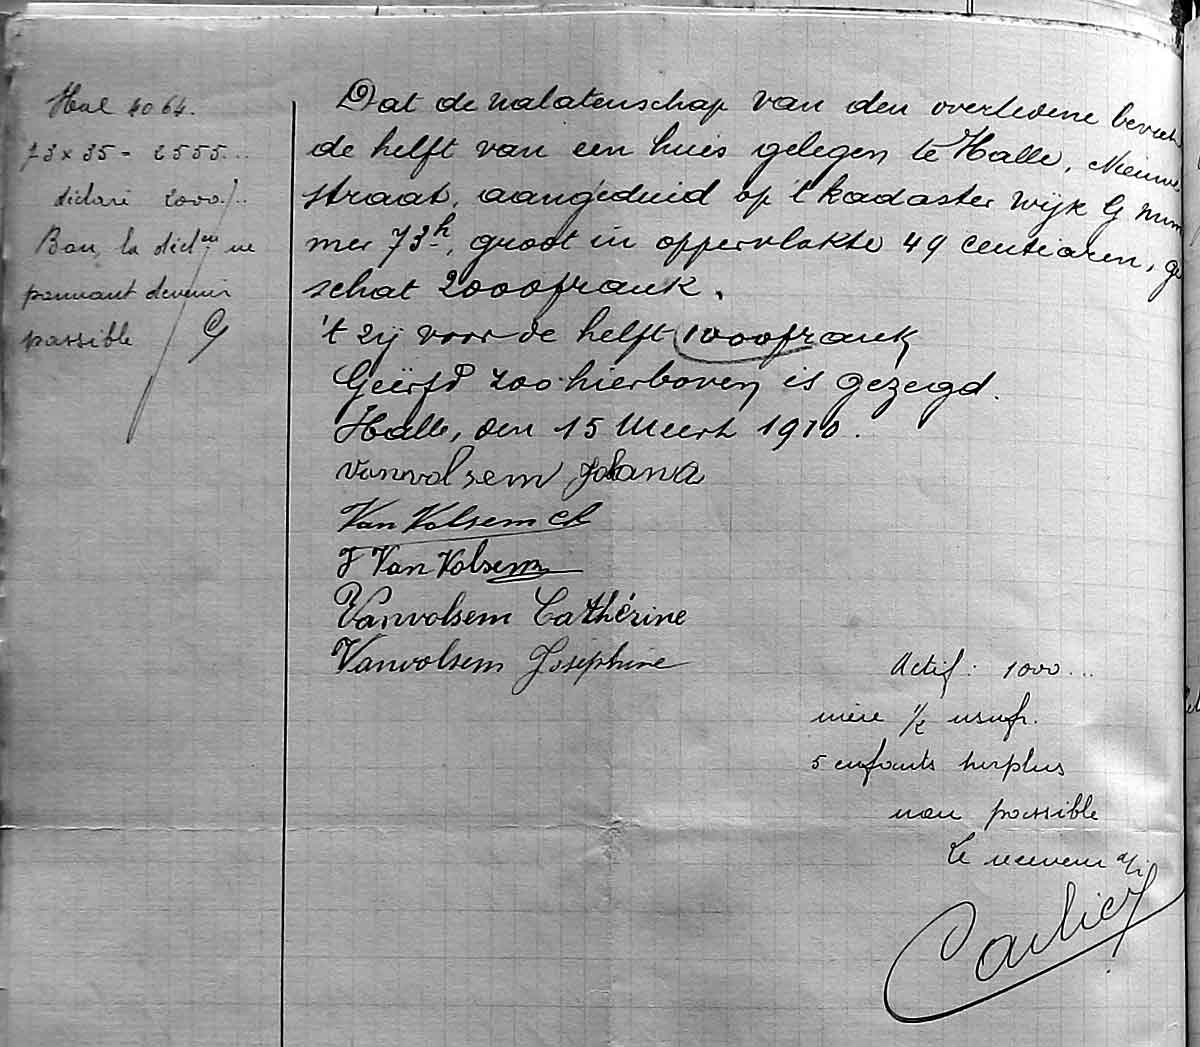 Hal 4064.
73 x 35 = 2555...
déclaré 2000/..
Bon, la décl on ne
pouvant devenir
passible
Dat de nalatenschap van den overledene bevat
de helft van een huis gelegen te Halle, Nieuw
straat, aangeduid op 't kadaster wijk G num
mer 73h, groot in oppervlakte 49 centiaren, ge
schat 2000 frank.
't zij voor de helft 1000 frank
Geërfd zoo hierboven is gezegd.
Halle, den 15 Meert 1910.
Vanvolsem Johana
Van Volsem
J Van Volsem
Vanvolsem Cathérine
Vanvolsem Joséphine
Actif : 1000...
mère 1/2 usufr.
5 enfants surplus
non passible
Le receveur a/i
Carlier